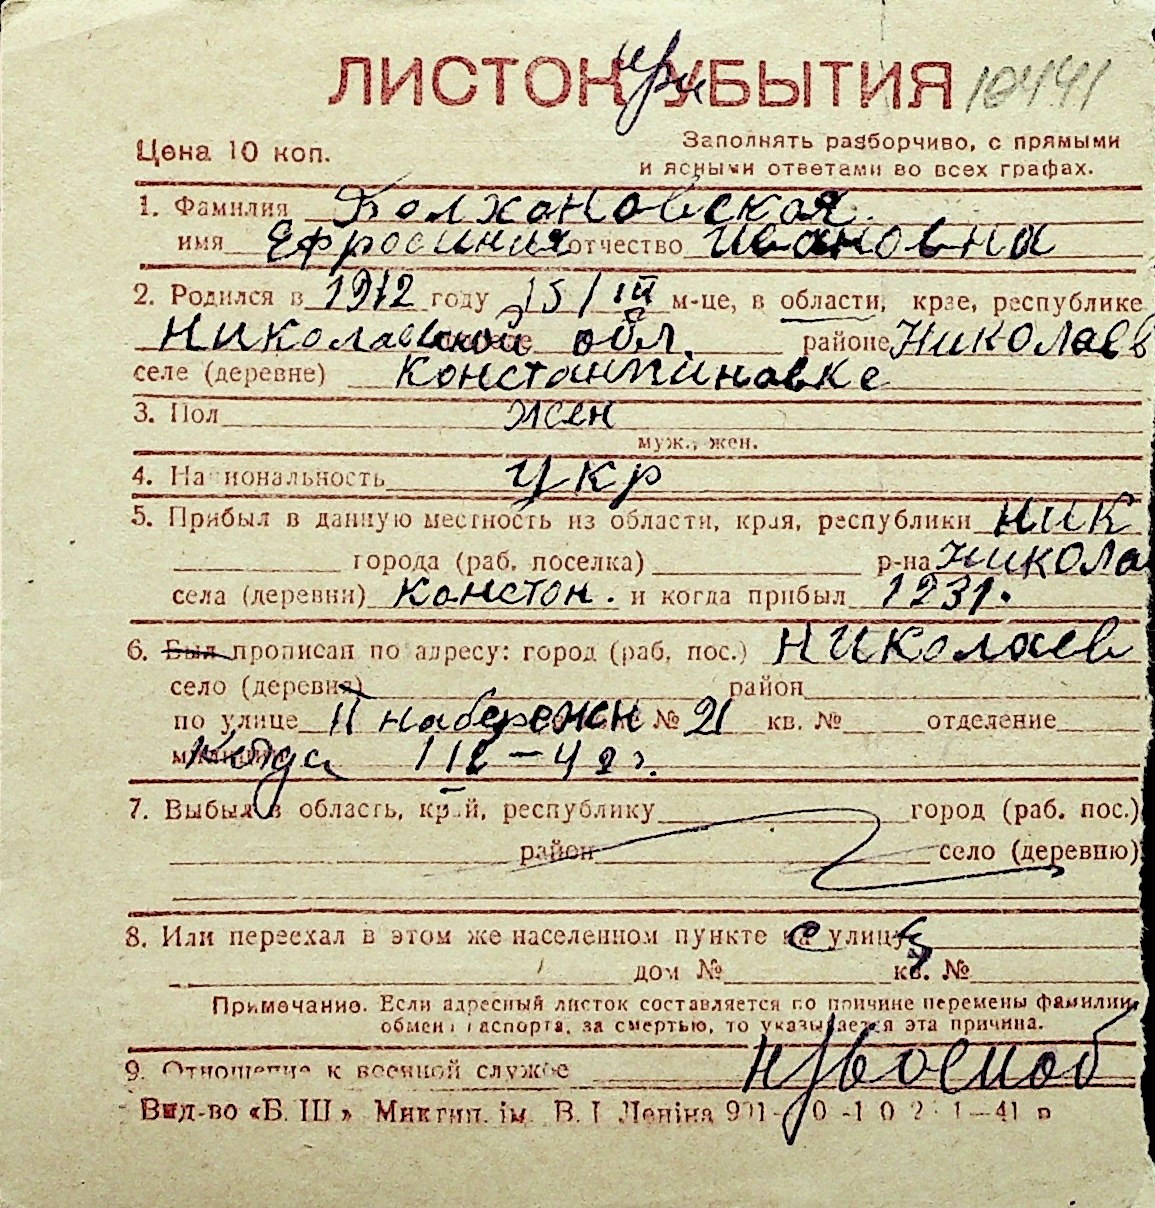 ЛИСТОК при УБЫТИЯ 10441
Цена 10 коп.
Заполнять разборчиво, с прямыми
и ясными ответами во всех графах.
1. Фамилия Болхановская
имя Ефросиния отчество Ивановна
2. Родился в 1912 году 15/III м-це, в области, крае, республике
Николаевской обл. районе Николаев
селе (деревне) Константиновке
3. Пол жен
муж., жен.
4. Национальность Укр
5. Прибыл в данную местность из области, края, республики Ник
города (раб. поселка) р-на Никола
села (деревни) Констон. и когда прибыл 1931.
6. Был прописан по адресу: город (раб. пос.) Николаев
село (деревня) район
по улице II набережн № 21 кв. № отделение
милиции Когда 1 II - 42 г.
7. Выбыл в область, край, республику город (раб. пос.)
район село (деревню)
8. Или переехал в этом же населенном пункте с улицы
дом № кв. №
Примечание. Если адресный листок составляется по причине перемены фамилии,
обмена паспорта, за смертью, то указывается эта причина.
9. Отношение к военной службе н/военоб
Вид-во «Б. Ш» Миктип. ім. В. І Леніна